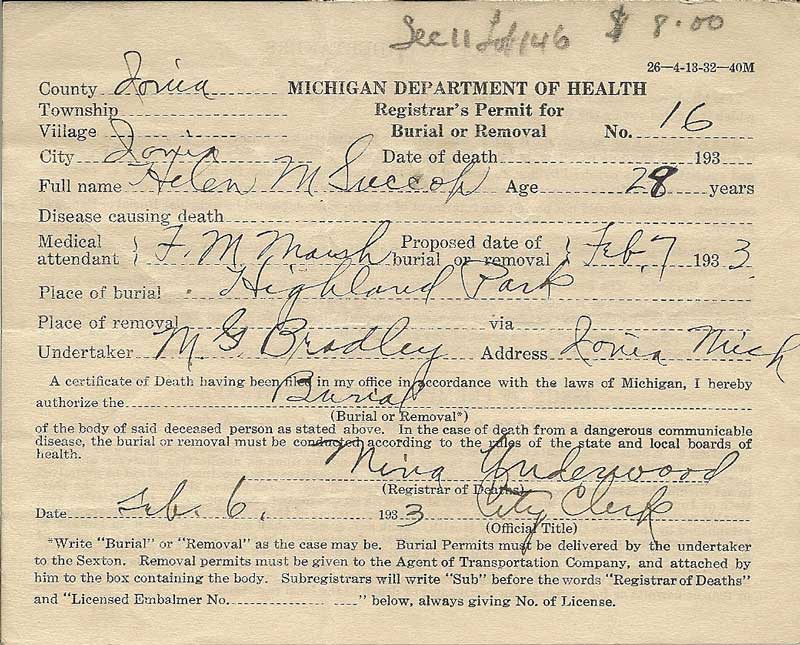 Sec 11 Lot 146 $ 8.00
26—4-13-32—40M
County Ionia MICHIGAN DEPARTMENT OF HEALTH
Township Registrar's Permit for
Village Burial or Removal No. 16
City Ionia Date of death 193
Full name Helen M Succop Age 28 years
Disease causing death
Medical attendant } F. M. Marsh Proposed date of burial or removal } Feb. 7 1933
Place of burial Highland Park
Place of removal via
Undertaker M G Bradley Address Ionia Mich
A certificate of Death having been filed in my office in accordance with the laws of Michigan, I hereby
authorize the Burial
(Burial or Removal*)
of the body of said deceased person as stated above. In the case of death from a dangerous communicable
disease, the burial or removal must be conducted according to the rules of the state and local boards of
health.
Mina Underwood
(Registrar of Deaths)
Date Feb. 6, 1933 City Clerk
(Official Title)
*Write "Burial" or "Removal" as the case may be. Burial Permits must be delivered by the undertaker
to the Sexton. Removal permits must be given to the Agent of Transportation Company, and attached by
him to the box containing the body. Subregistrars will write "Sub" before the words "Registrar of Deaths"
and "Licensed Embalmer No. " below, always giving No. of License.